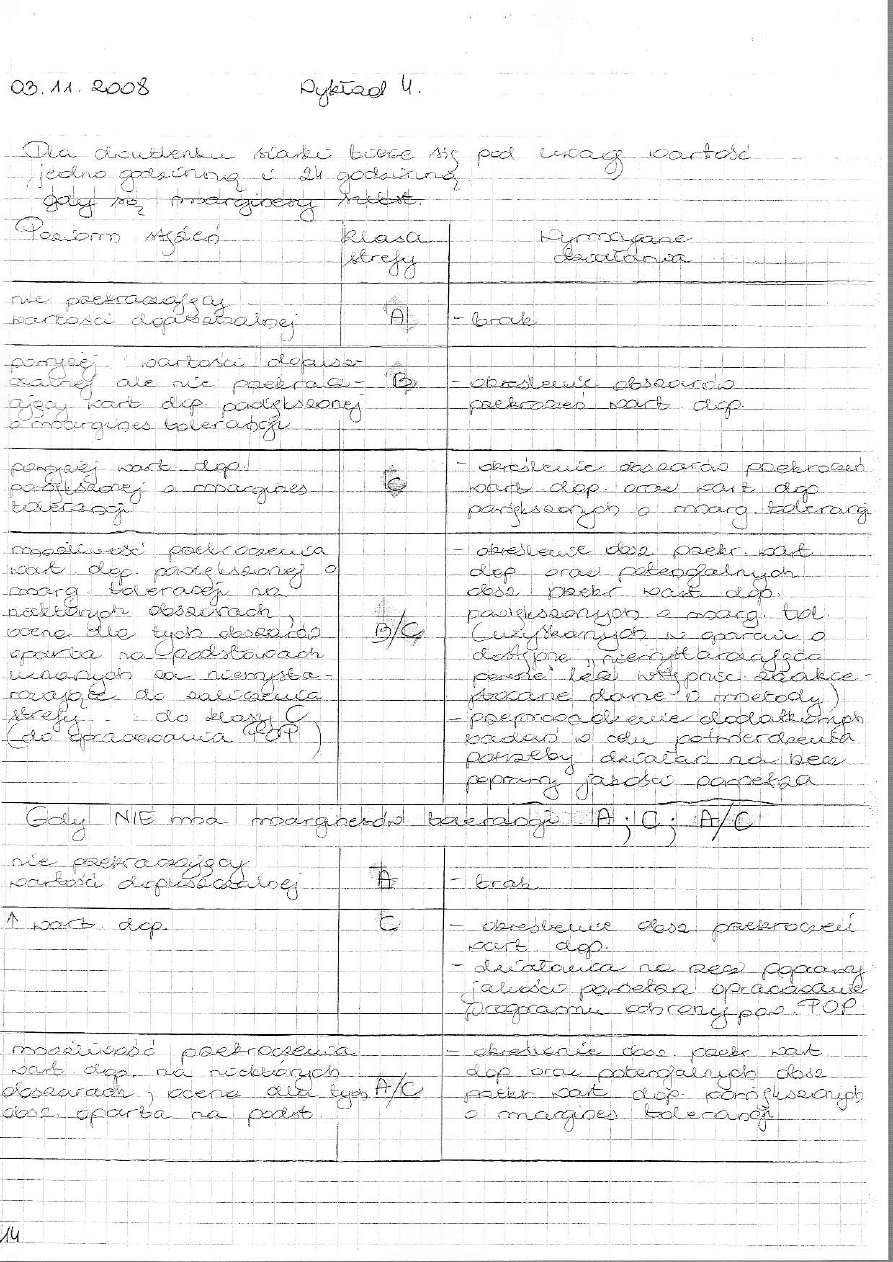 03.11.2008 Wykład 4.
Dla dwutlenku siarki bierze się pod uwagę wartość
jedno godzinną i 24 godzinną
gdy są marginesy
Poziom stężeń klasa strefy Wymagane działania
nie przekraczający
wartości dopuszczalnej A - brak
powyżej wartości dopusz-
czalnej ale nie przekracz- B - określenie obszarów
ający wart dop. powiększonej przekroczeń wart dop.
o margines tolerancji
powyżej wart dop. - określenie obszarów przekroczeń
powiększonej o margines C wart dop. oraz wart dop.
tolerancji powiększonych o marg tolerancji
możliwość przekroczenia - określenie obsz przekr. wart
wart dop. powiększonej o dop oraz potencjalnych
marg tolerancji na obsz przekr wart dop.
niektórych obszarach, powiększonych o marg. tol.
ocena dla tych obszarów B/C (uzyskanych w oparciu o
oparta na podstawach dostępne, niewystarczająco
uznanych za niewysta- pewne lecz wstępnie zaakce-
rczające do zaliczenia ptowane dane i metody)
strefy do klasy C - przeprowadzenie dodatkowych
(do opracowania POP) badań w celu potwierdzenia
potrzeby działań na rzecz
poprawy jakości powietrza
Gdy NIE ma marginesów tolerancji A; C; A/C
nie przekraczający
wartości dopuszczalnej A - brak
↑ wart dop. C - określenie obsz przekroczeń
wart dop.
- działania na rzecz poprawy
jakości powietrza opracowanie
programu ochrony pow. POP
możliwość przekroczenia - określenie obsz. przekr wart
wart dop. na niektórych dop oraz potencjalnych obsz
obszarach, ocena dla tych A/C przekr wart dop. powiększonych
obsz oparta na podst o margines tolerancji
14